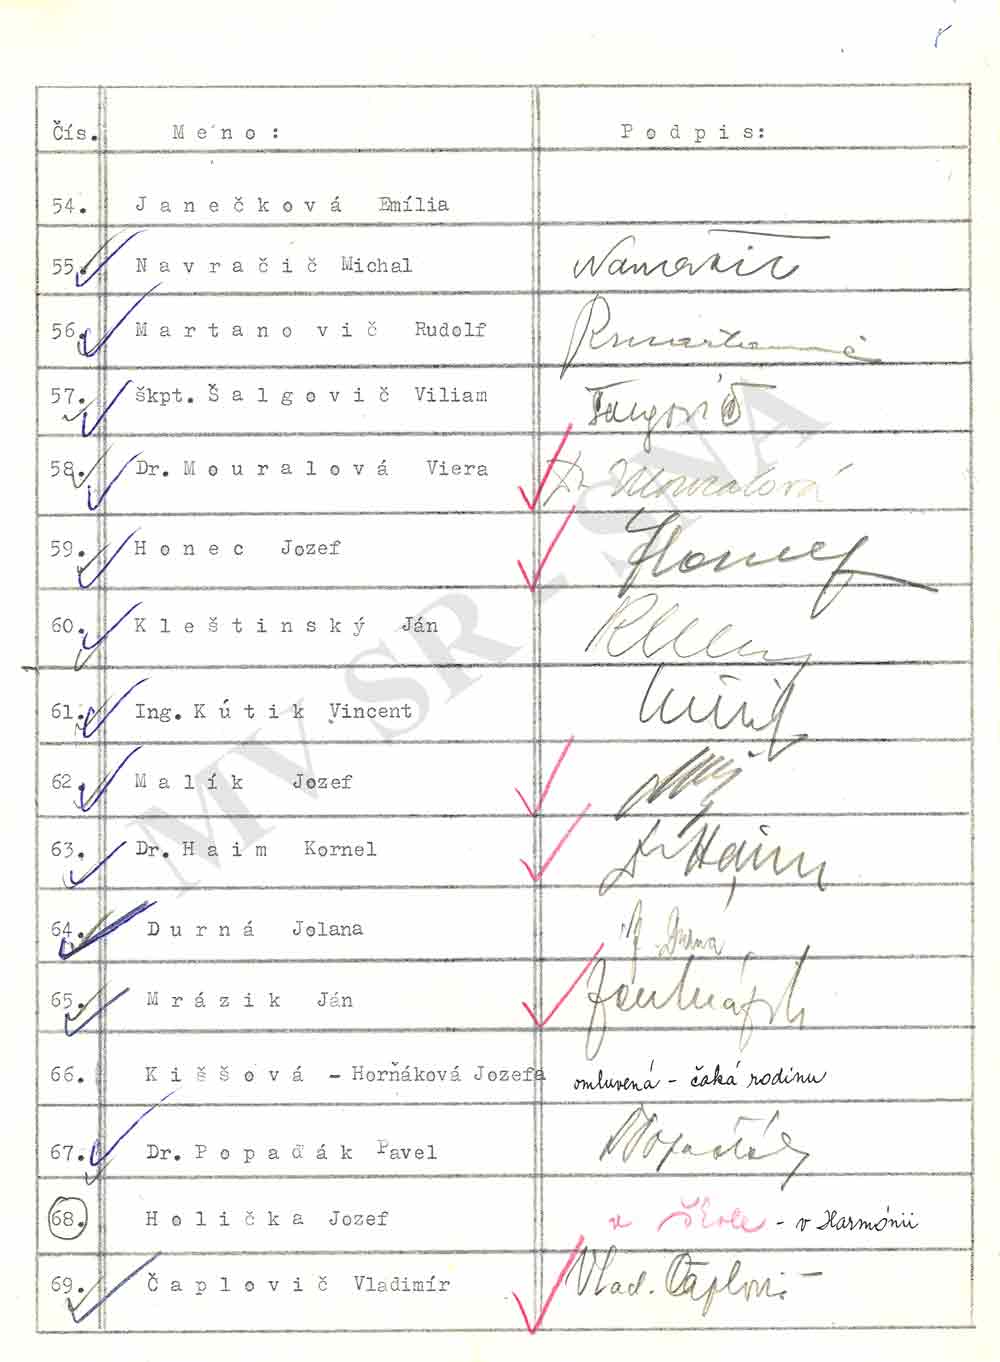 Čís. Meno: Podpis:
54. Janečková Emília
55. Navračič Michal
56. Martanovič Rudolf
57. škpt. Šalgovič Viliam
58. Dr. Mouralová Viera Dr Mouralová
59. Honec Jozef Honec J
60. Kleštinský Ján
61. Ing. Kútik Vincent
62. Malík Jozef
63. Dr. Haim Kornel Dr Haim
64. Durná Jolana J. Durná
65. Mrázik Ján Ján Mrázik
66. Kiššová - Horňáková Jozefa omluvená - čaká rodinu
67. Dr. Popaďák Pavel
68. Holička Jozef v škole - v Harmónii
69. Čaplovič Vladimír Vlad. Čaplovič
MV SR - SNA